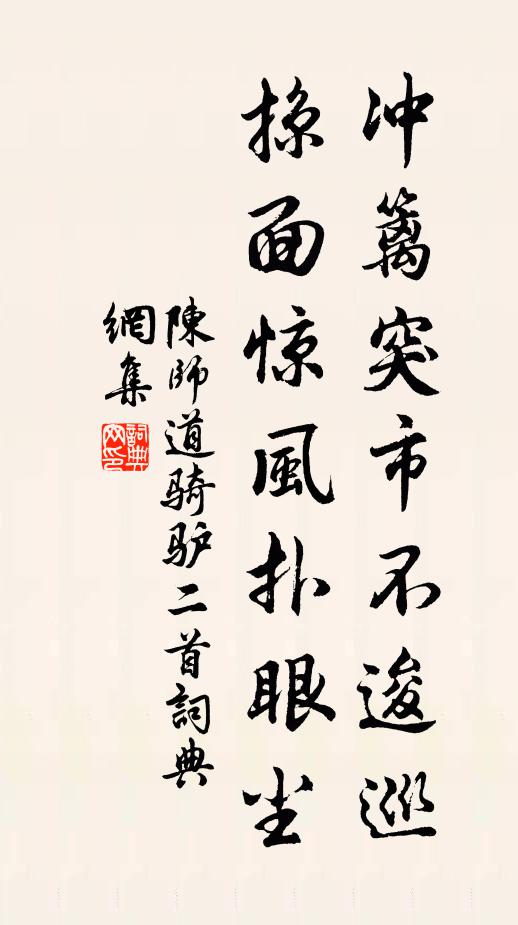 冲篱突市不逡巡
掠面惊風扑眼尘
陳師道骑驴二首詞典
網集
詞典网印